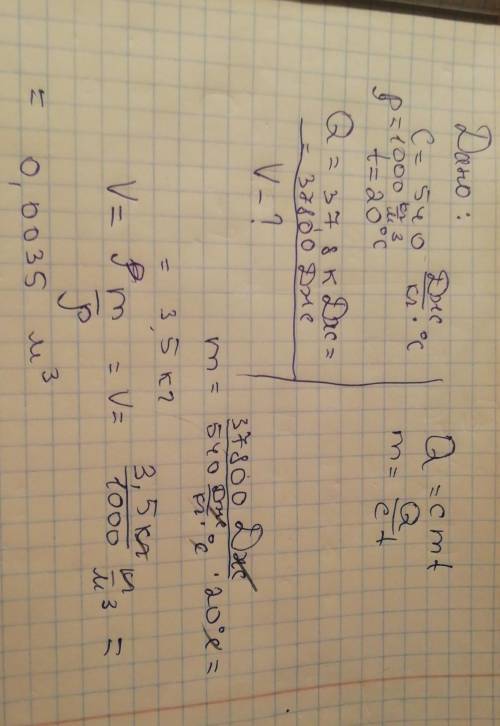 Дано:
C = 540 Дж/кг·°C
ρ = 1000 кг/м³
t = 20°C
Q = 37,8 кДж =
= 37800 Дж
V - ?
Q = cmt
m = Q/ct
m = 37800 Дж / 540 Дж/кг·°C · 20°C =
= 3,5 кг
V = m/ρ = V = 3,5 кг / 1000 кг/м³ =
= 0,0035 м³